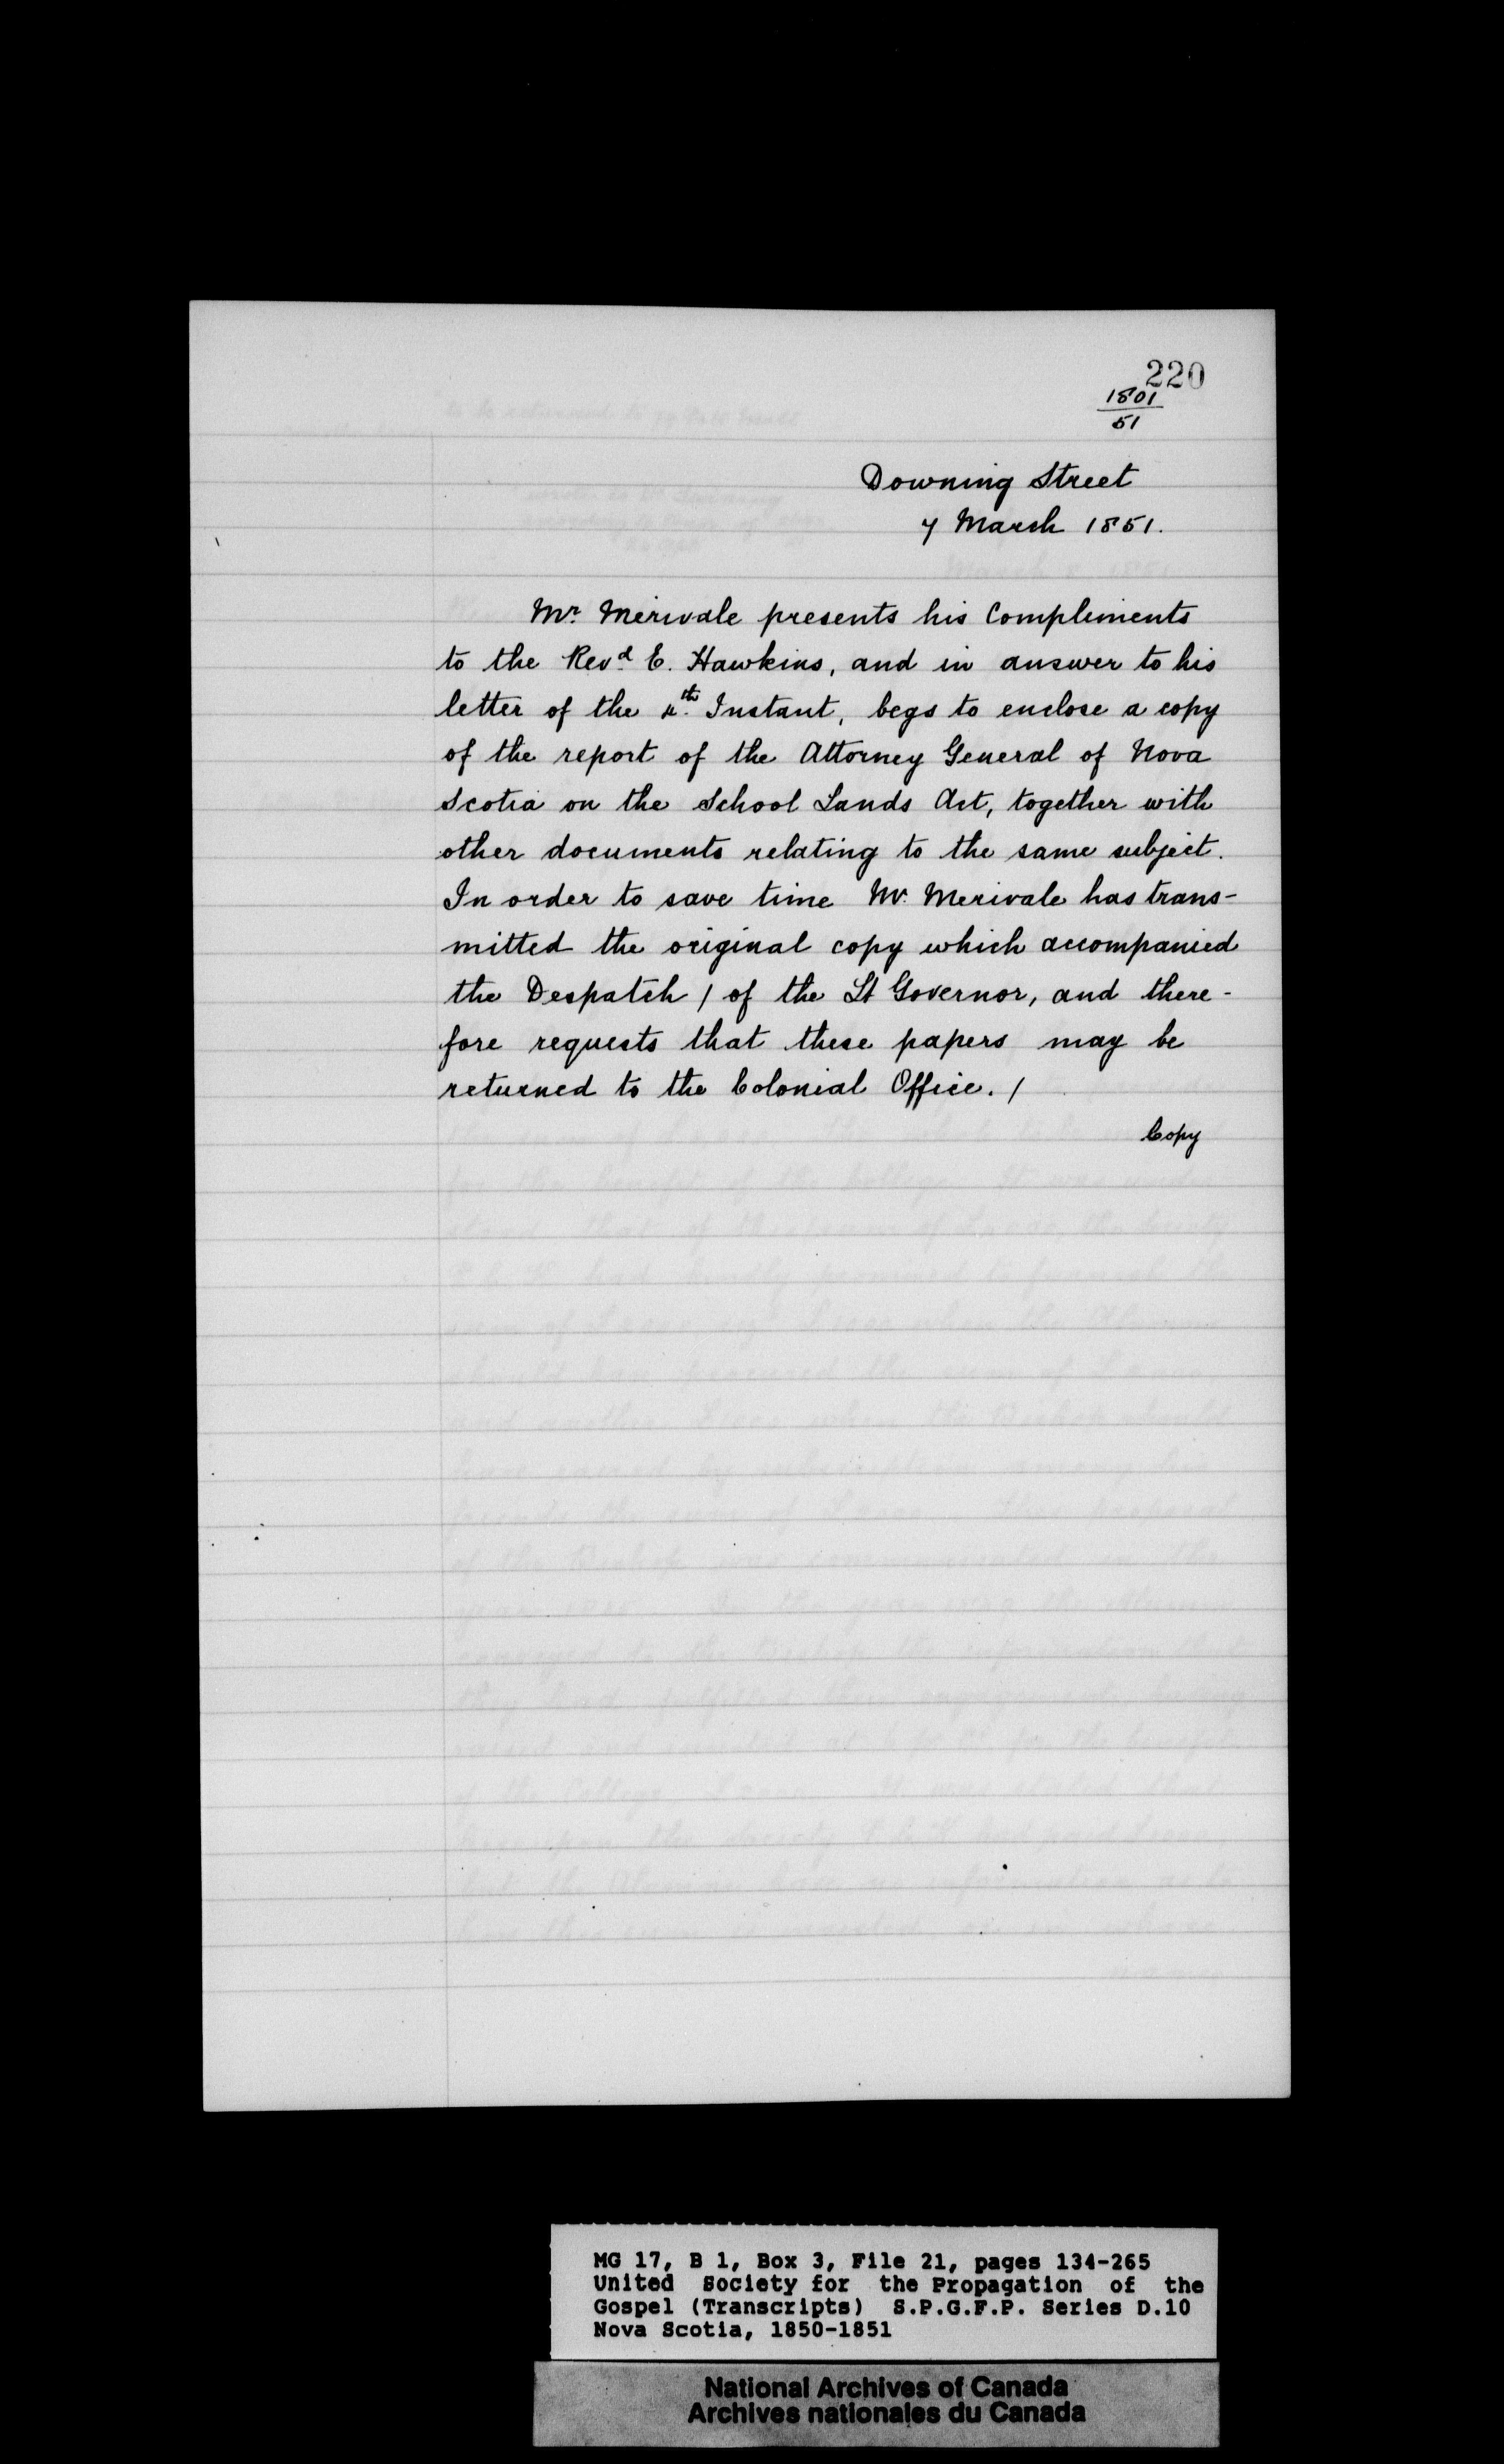 220
1801
51
Downing Street
7 March 1851.
Mr. Merivale presents his Compliments
to the Revd. E. Hawkins, and in answer to his
letter of the 4th. Instant, begs to enclose a copy
of the report of the Attorney General of Nova
Scotia on the School Lands Act, together with
other documents relating to the same subject.
In order to save time Mr. Merivale has trans-
mitted the original copy which accompanied
the Despatch / of the Lt Governor, and there-
fore requests that these papers may be
returned to the Colonial Office. /
Copy
MG 17, B 1, Box 3, File 21, pages 134-265
United Society for the Propagation of the
Gospel (Transcripts) S.P.G.F.P. Series D.10
Nova Scotia, 1850-1851
National Archives of Canada
Archives nationales du Canada